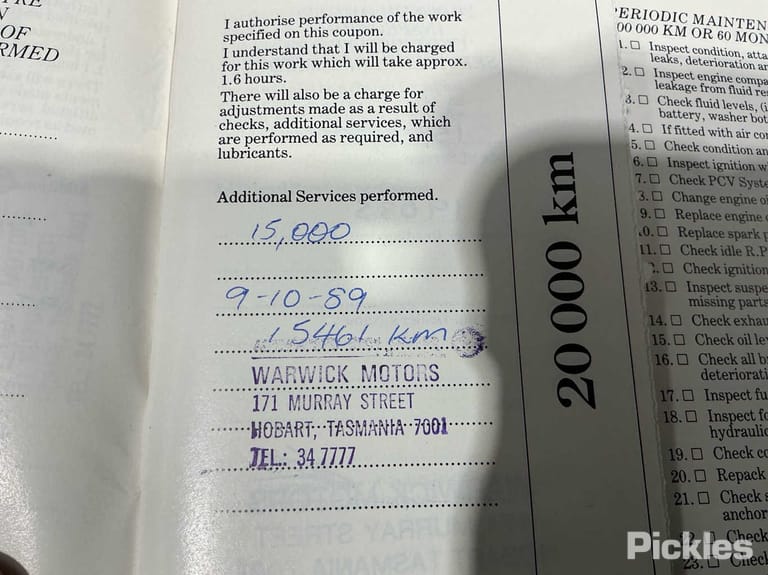 OF
I authorise performance of the work
specified on this coupon.
I understand that I will be charged
for this work which will take approx.
1.6 hours.
There will also be a charge for
adjustments made as a result of
checks, additional services, which
are performed as required, and
lubricants.
Additional Services performed.
15,000
9-10-89
15461 km
WARWICK MOTORS
171 MURRAY STREET
HOBART, TASMANIA 7001
TEL: 34 7777
20 000 km
PERIODIC MAINTEN
00 000 KM OR 60 MON
1. Inspect condition, atta
leaks, deterioration an
2. Inspect engine compa
leakage from fluid res
3. Check fluid levels, (i
battery, washer bot
4. If fitted with air con
5. Check condition an
6. Inspect ignition w
7. Check PCV Syste
8. Change engine oi
9. Replace engine
10. Replace spark p
11. Check idle R.P
Check ignition
13. Inspect suspe
missing parts
14. Check exhau
15. Check oil lev
16. Check all b
deteriorati
17. Inspect fu
18. Inspect fo
hydraulic
19. Check co
20. Repack
21. Check s
anchor
22. Check
23. Check
Pickles